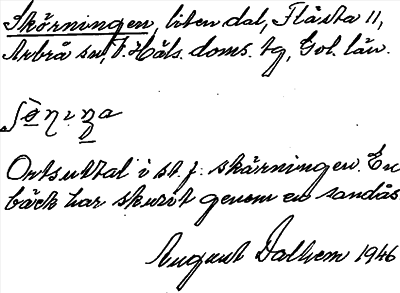 Skörningen, liten dal, Flästa 11,
Arbrå sn, V. Häls. doms. tg, Gvl. län.
Ortsuttal i st. f. skärningen. En
bäck har skurit genom en sandås.
August Dalhem 1946